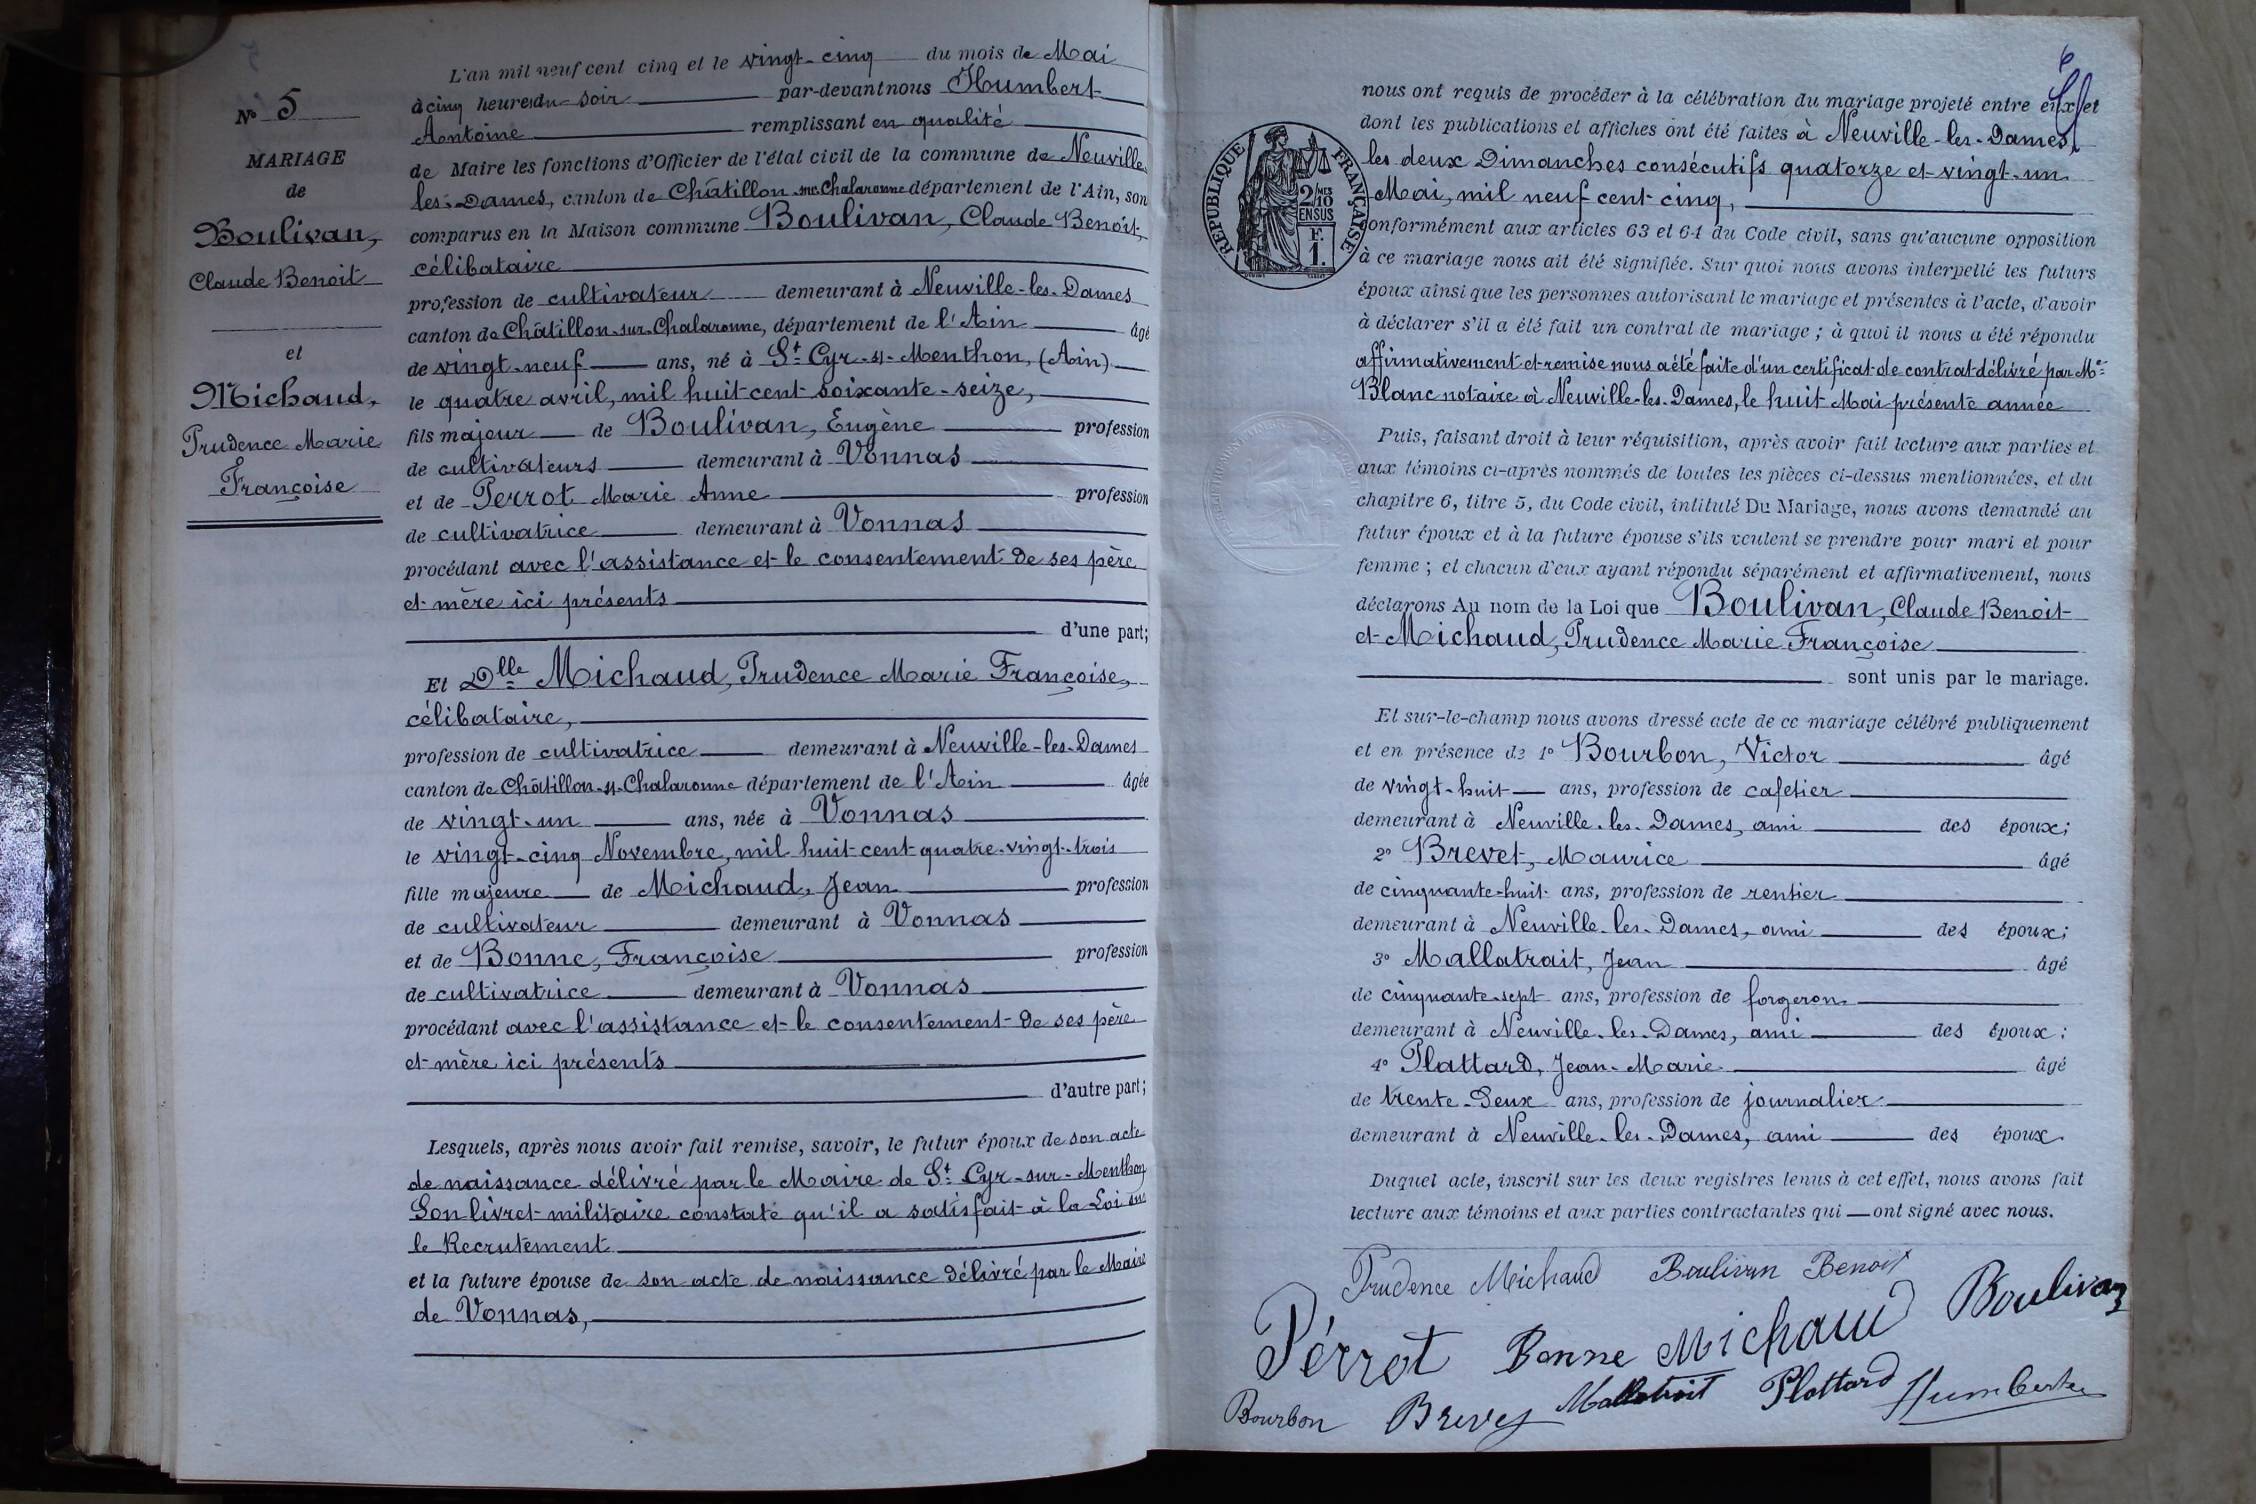 N° 5
MARIAGE
de
Boulivan,
Claude Benoit
et
Michaud,
Prudence Marie
Françoise
L'an mil neuf cent cinq et le vingt-cinq du mois de Mai
à cinq heures du soir par-devant nous Humbert
Antoine remplissant en qualité
de Maire les fonctions d'Officier de l'état civil de la commune de Neuville
les-Dames, canton de Châtillon-sur-Chalaronne département de l'Ain, son
comparus en la Maison commune Boulivan, Claude Benoit,
célibataire
profession de cultivateur demeurant à Neuville-les-Dames
canton de Châtillon-sur-Chalaronne, département de l'Ain âgé
de vingt-neuf ans, né à St Cyr-s/-Menthon, (Ain)
le quatre avril, mil huit cent soixante-seize,
fils majeur de Boulivan, Eugène profession
de cultivateurs demeurant à Vonnas
et de Perrot Marie Anne profession
de cultivatrice demeurant à Vonnas
procédant avec l'assistance et le consentement de ses père
et mère ici présents
d'une part;
Et Dlle Michaud, Prudence Marie Françoise,
célibataire,
profession de cultivatrice demeurant à Neuville-les-Dames
canton de Châtillon-s/-Chalaronne département de l'Ain âgée
de vingt-un ans, née à Vonnas
le vingt-cinq Novembre, mil huit cent quatre-vingt-trois
fille majeure de Michaud, Jean profession
de cultivateur demeurant à Vonnas
et de Bonne, Françoise profession
de cultivatrice demeurant à Vonnas
procédant avec l'assistance et le consentement de ses père
et mère ici présents
d'autre part;
Lesquels, après nous avoir fait remise, savoir, le futur époux de son acte
de naissance délivré par le Maire de St Cyr-sur-Menthon
Son livret militaire constate qu'il a satisfait à la Loi sur
le Recrutement
et la future épouse de son acte de naissance délivré par le Maire
de Vonnas,
6
nous ont requis de procéder à la célébration du mariage projeté entre eux et
dont les publications et affiches ont été faites à Neuville-les-Dames,
les deux Dimanches consécutifs quatorze et vingt-un
Mai, mil neuf cent cinq,
conformément aux articles 63 et 64 du Code civil, sans qu'aucune opposition
à ce mariage nous ait été signifiée. Sur quoi nous avons interpellé les futurs
époux ainsi que les personnes autorisant le mariage et présentes à l'acte, d'avoir
à déclarer s'il a été fait un contrat de mariage ; à quoi il nous a été répondu
affirmativement et remise nous a été faite d'un certificat de contrat délivré par Me
Blanc notaire à Neuville-les-Dames, le huit Mai présente année
Puis, faisant droit à leur réquisition, après avoir fait lecture aux parties et
aux témoins ci-après nommés de toutes les pièces ci-dessus mentionnées, et du
chapitre 6, titre 5, du Code civil, intitulé Du Mariage, nous avons demandé au
futur époux et à la future épouse s'ils veulent se prendre pour mari et pour
femme ; et chacun d'eux ayant répondu séparément et affirmativement, nous
déclarons Au nom de la Loi que Boulivan, Claude Benoit
et Michaud, Prudence Marie Françoise
sont unis par le mariage.
Et sur-le-champ nous avons dressé acte de ce mariage célébré publiquement
et en présence de 1° Bourbon, Victor âgé
de vingt-huit ans, profession de cafetier
demeurant à Neuville-les-Dames, ami des époux;
2° Brevet, Maurice âgé
de cinquante-huit ans, profession de rentier
demeurant à Neuville-les-Dames, ami des époux;
3° Mallatrait, Jean âgé
de cinquante-sept ans, profession de forgeron
demeurant à Neuville-les-Dames, ami des époux;
4° Plattard, Jean-Marie âgé
de trente-deux ans, profession de journalier
demeurant à Neuville-les-Dames, ami des époux.
Duquel acte, inscrit sur les deux registres tenus à cet effet, nous avons fait
lecture aux témoins et aux parties contractantes qui ont signé avec nous.
Prudence Michaud Boulivan Benoit
Pérrot Bonne Michaud Boulivan
Bourbon Brevet Mallatrait Plattard Humbert
RÉPUBLIQUE FRANÇAISE
2/10 MES
EN SUS
F.
1.